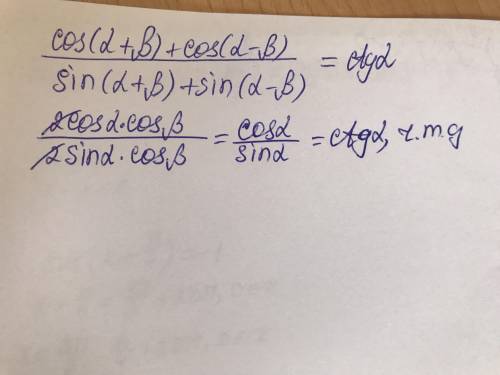 cos(α+β)+cos(α-β) / sin(α+β)+sin(α-β) = ctgα
2cosα·cosβ / 2sinα·cosβ = cosα / sinα = ctgα, ч.т.д